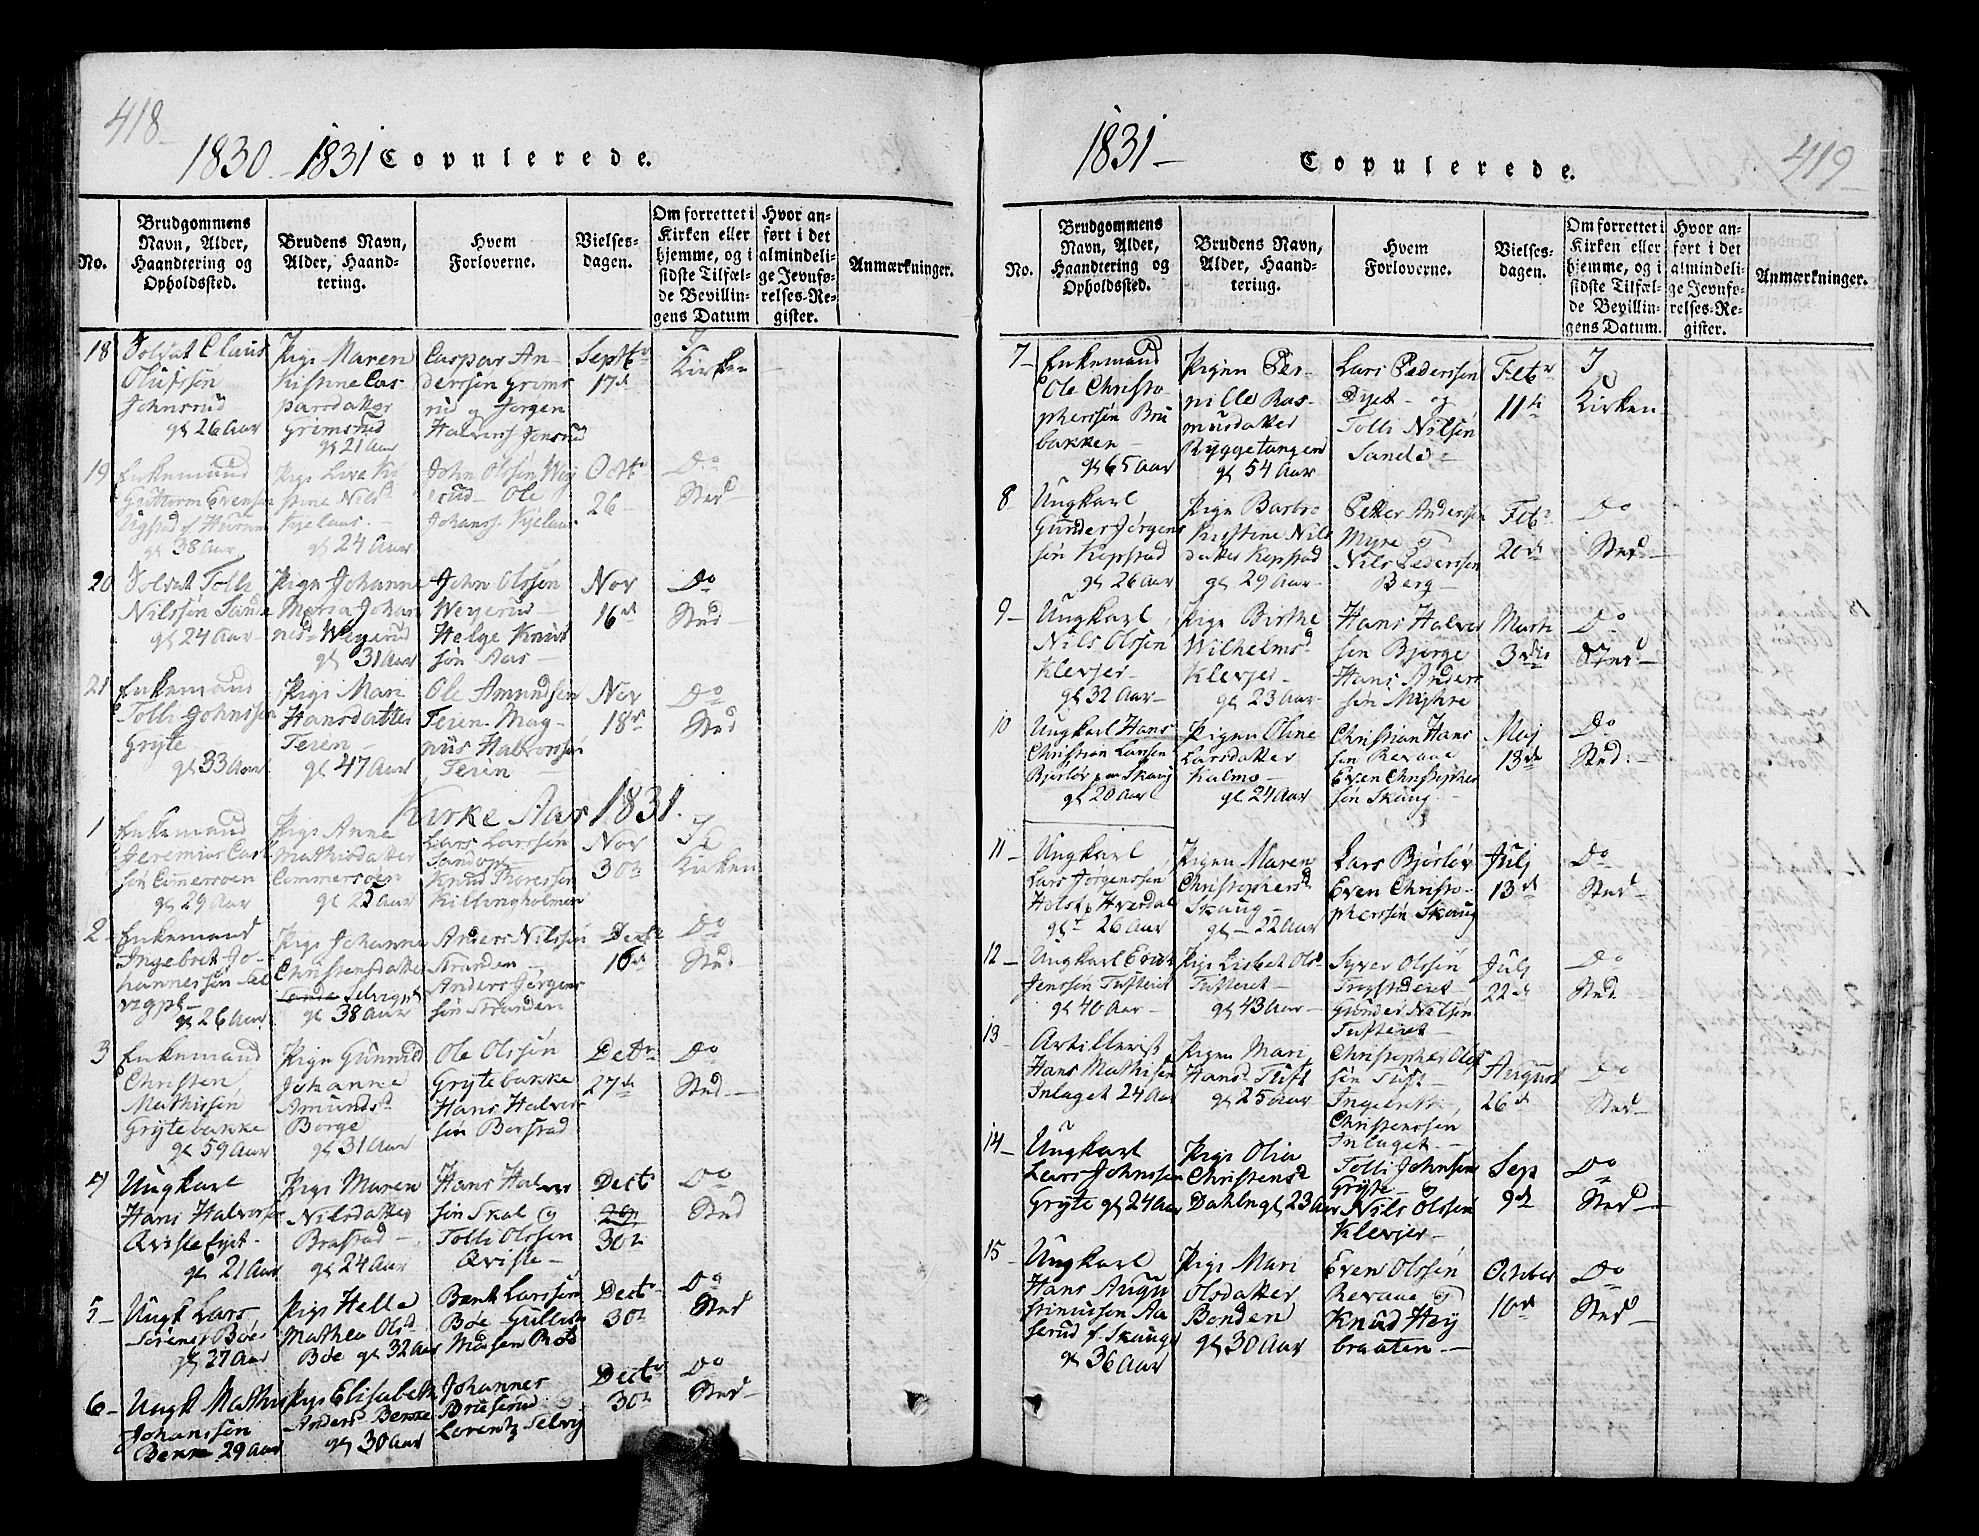 418
1830 - 1831 Copulerede.
No.
Brudgommens
Navn, Alder,
Haandtering og
Opholdssted.
Brudens Navn,
Alder, Haand-
tering.
Hvem
Forloverne.
Vielses-
dagen.
Om forrettet i
Kirken eller
hjemme, og i
sidste Tilfæl-
de Bevillin-
gens Datum
Hvor an-
ført i det
almindeli-
ge Jevnfø-
relses-Re-
gister.
Anmærkninger.
18
Soldat Claus
Olufssøn
Johnsrud
gl 26 Aar
Pige Maren
Kistine Cas-
parsdatter
Grimsrud
gl 21 Aar
Caspar An-
derssøn Grims
rud og Jørgen
Halvers. Jonsrud
Septbr
17de
I
Kirken
19
Enkemand
Guttorm Evensen
gl 38 Aar
Pige Live Ki
stine Nilsd
Kjelaas
gl 24 Aar
John Olssøn Wey
erud - Ole
Johanss. Kjelaas
Octbr
26
Do
Sted
20
Soldat Tolle
Nilssøn Sande
gl 24 Aar
Pigen Johanne
Maria Johan
nesd Weyerud
gl 31 Aar
John Olssøn
Weyerud
Helge Knud
søn Aas
Nov
16de
Do
Sted
21
Enkemand
Tolle Johnssøn
Gryte
gl 33 Aar
Pige Mari
Hansdatter
Teren
gl 47 Aar
Ole Amundsen
Teren - Mag-
nus Halvorssøn
Teren
Nov
18de
Do
Sted
Kirke Aar 1831.
1
Enkemand
Jeremias Carl
søn Cimmersoen
gl 29 Aar
Pige Anne
Mathisdatter
Cimmersoen
gl 25 Aar
Lars Larssøn
Knud Toressen
Killingholmen
Nov
30te
I
Kirken
2
Enkemand
Ingebret Jo-
hannessøn Sel
vigpl
gl 26 Aar
Pige Johanne
Christensdatter
Sande Selvigpl
gl 38 Aar
Anders Nilssøn
Stranden
Anders Jørgens
søn Stranden
Decbr
16de
Do
Sted
3
Enkemand
Christen
Mathissen
Grytebakke
gl 59 Aar
Pige Gunnild
Johanne
Amundsd
Borge
gl 31 Aar
Ole Olssøn
Grytebakke
Hans Halver
søn Borstad
Detbr
27de
Do
Sted
4
Ungkarl
Hans Halvorsen
Qviste Eyet
gl 21 Aar
Pige Maren
Nilsdatter
Brastad
gl 24 Aar
Hans Halver
søn Skal og
Tolle Olssøn
Qviste
Dectr
29
30te
Do
Sted
5
Ungk Lars
Sørensen Bøe
gl 27 Aar
Pige Helle
Mathea Olsd
Bøe gl 32 Aar
Bent Larssøn
Bøe
Dectr
30te
Do
Sted
6
Ungk Mathis
Johanssøn
Bekke 29 Aar
Pige Elisabeth
Andersd Bekke
gl 30 Aar
Johannes
Bruserud og
Lorentz Selvig
Dectr
30te
Do
Sted
1831 -
Copulerede.
419
No.
Brudgommens
Navn, Alder,
Haandtering og
Opholdssted.
Brudens Navn,
Alder, Haand-
tering.
Hvem
Forloverne.
Vielses-
dagen.
Om forrettet i
Kirken eller
hjemme, og i
sidste Tilfæl-
de Bevillin-
gens Datum.
Hvor an-
ført i det
almindeli-
ge Jevnfø-
relses-Re-
gister.
Anmærkninger.
7
Enkemand
Ole Christo-
pherssøn Bru
bakken
gl 65 Aar
Pigen Per-
nille Ras-
musdatter
Ryggetangen
gl 54 Aar
Lars Pederssøn
Dyet og
Tolle Nilsøn
Sande
Febr
11te
I
Kirken
8
Ungkarl
Gunder Jørgens
søn Kopstad
gl 26 Aar
Pigen Barbro
Kistine Nils
datter Kopstad
gl 29 Aar
Petter Anderssen
Myre og
Nils Pederssen
Berg
Febr
20de
Do
Sted
9
Ungkarl
Nils Olssøn
Klevjer
gl 32 Aar
Pige Birthe
Wilhelmsd
Klevjer
gl 23 Aar
Hans Halver
søn Bjerge
Hans Anders
søn Myhre
Marti
3die
Do
Sted
10
Ungkarl Hans
Christian Larsen
Bjørløv paa Skaug
gl 20 Aar
Pigen Oline
Larsdatter
Holmo
gl 24 Aar
Christian Hans
søn Revaae
Even Christopher
søn Skaug
Maj
13de
Do
Sted
11
Ungkarl
Lars Jørgenssen
Holst p Hverdal
gl 26 Aar
Pigen Maren
Christophersd
Skaug
gl 22 Aar
Lars Bjørløv
Even Christo-
pherssøn Skaug
Julj
13de
Do
Sted
12
Ungkarl Even
Jenssøn Tufteret
gl 40 Aar
Pige Lisbet Olsd
Tufteret
gl 43 Aar
Syver Olssøn
Gunder Nilsøn
Tufteret
Julj
22de
Do
Sted
13
Artillerist
Hans Mathisen
Inlaget 24 Aar
Pigen Mari
Hansd Tuft
gl 25 Aar
Christopher Ols
søn Tuft
Ingebret
Christenssen
Inlaget
August
26de
Do
Sted
14
Ungkarl
Lars Johnssen
Gryte gl 24 Aar
Pige Olia
Christensd
Dahlen gl 23 Aar
Tolle Johnsen
Gryte og
Nils Olssøn
Klevjer
Sep
9de
Do
Sted
15
Ungkarl
Hans Augu
stinussen Aa
serud f. Skauge
gl 36 Aar
Pige Mari
Olsdatter
Bonden
gl 30 Aar
Even Olssøn
Revaae og
Knud Høy
braaten
October
10de
Do
Sted